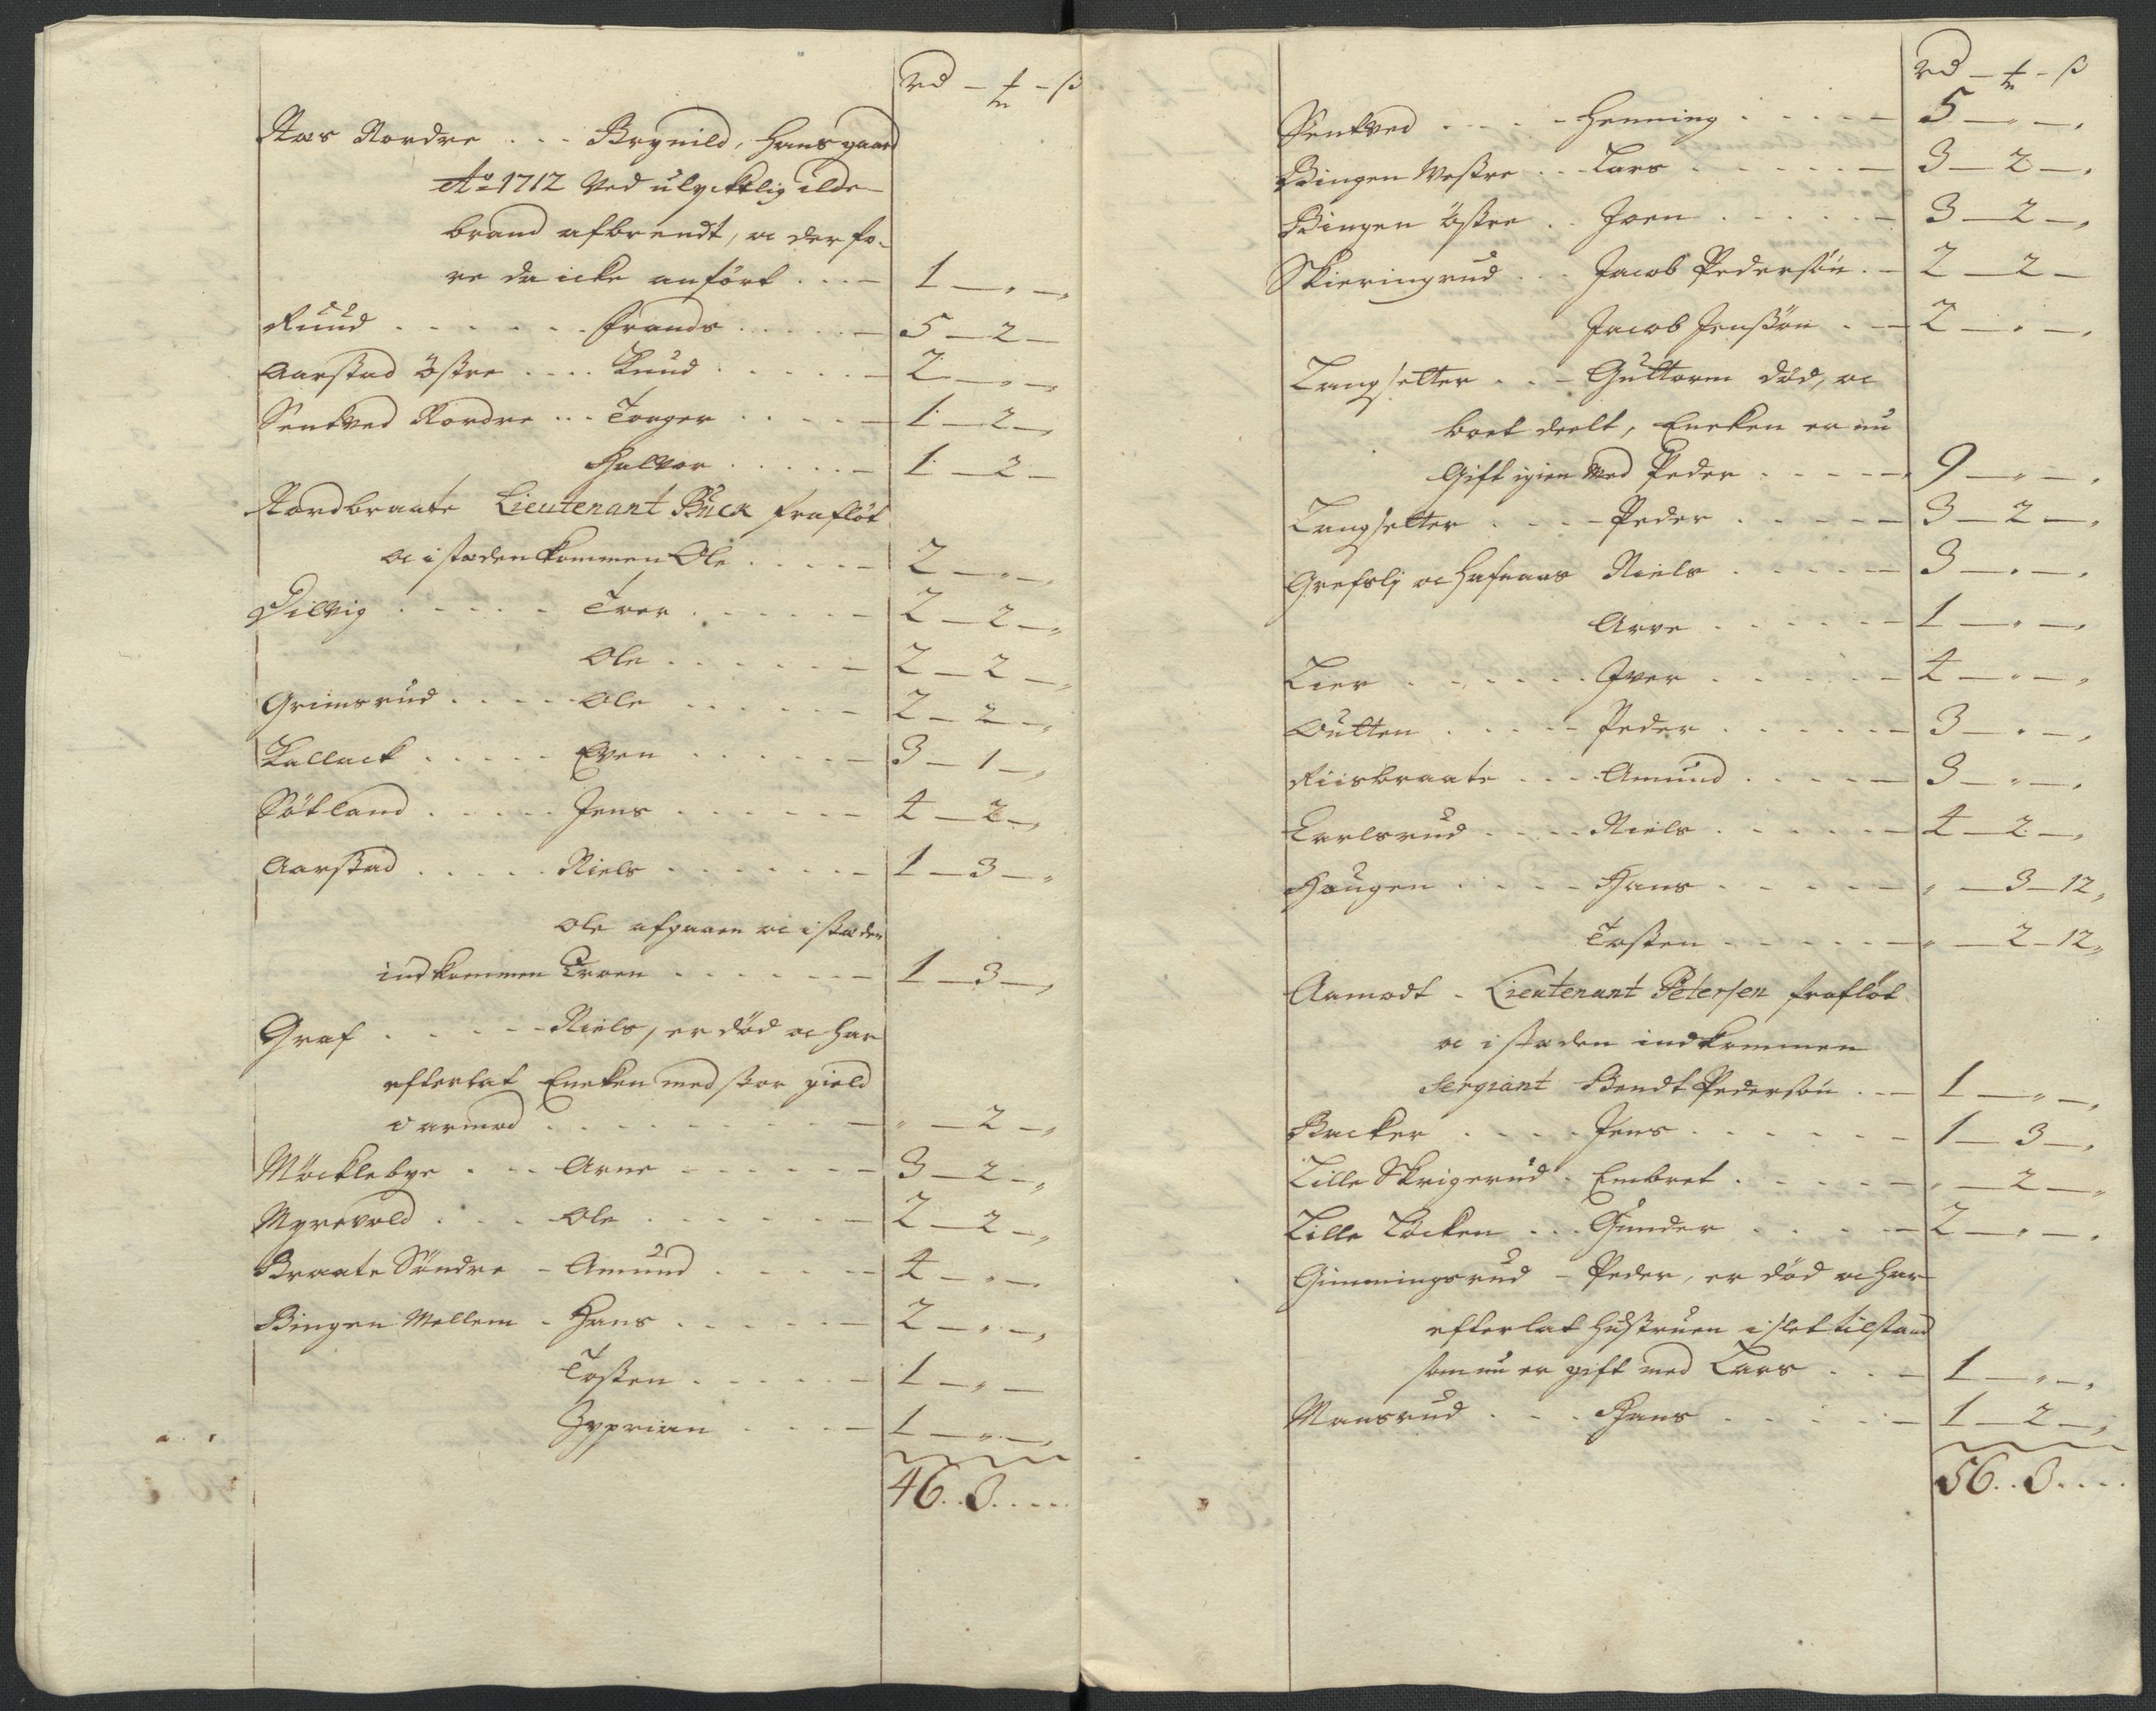 rd - ƒ - ß
Nordre . . . Brynild, hans gaard
Ao 1712 Ved ulyckelig ilde
brand afbrendt, oc der fo-
re da icke anført . . . — 1 — " — "
Ruud . . . . . . Frands . . . . . — 5 — 2 —
Aarstad Østre . . . . Knud . . . . . — 2 — " — "
Sentved Nordre . . . Torger . . . . — 1 — 2 — "
Halvor . . . . . — 1 — 2 —
Nordbraate Lieutenant Buck frafløt
oc i stæden kommen Ole . . . . — 2 — " — "
Dilvig . . . . . Iver . . . . . . — 2 — 2 — "
Ole . . . . . . — 2 — 2 — "
Grimsrud . . . . Ole . . . . . . — 2 — 2 — "
Kallack . . . . . Even . . . . . . — 3 — 1 — "
Søtland . . . . . Jens . . . . . . — 4 — 2 — "
Aarstad . . . . . Niels . . . . . . — 1 — 3 — "
Ole afgaaen oc i stæden
indkommen . . . . . . — 1 — 3 — "
Graf . . . . . Niels, er død oc har
efterlat Encken med stor gield
i armod . . . . . . . . . — " — 2 — "
Möcklebye . . . Arne . . . . . . — 3 — 2 — "
Myrevold . . . . Ole . . . . . . — 2 — 2 — "
Braate Søndre - Amund . . . . . — 4 — " —
Bingen Mellem - Hans . . . . . . — 2 — " — "
Tosten . . . . . — 1 — " —
Zyprian . . . . — 1 — " — "
46..3.....
rd - ƒ - ß
Sentved . . . . - Henning . . . . . — 5 — " — "
Bingen Westre . . . Lars . . . . . . — 3 — 2 — "
Bingen Østre . . Joen . . . . . . — 3 — 2 — "
Skieringrud . . . Jacob Pedersøn . — 2 — 2 —
Jacob Jenssøn . . — 2 — " — "
Langsetter . . . - Guttorm død, oc
boet deelt, Encken er nu
Gift igien med Peder . . . . — 9 — " — "
Langsetter . . . . - Peder . . . . . — 3 — 2 — "
Grefslj oc Hafnaas Niels . . . . . — 3 — " — "
Arve . . . . . . — 1 — " — "
Lier . . . . . . Iver . . . . . . — 4 — " — "
Outten . . . . . Peder . . . . . . — 3 — " — "
Riisbraate . . . . Amund . . . . . — 3 — " — "
Karlsrud . . . . Niels . . . . . . — 4 — 2 — "
Haugen . . . . . Hans . . . . . . — " — 3 — 12 "
Tosten . . . . . . — " — 2 — 12 "
Aamodt - Lieutenant Petersen frafløt
oc i stæden indkommen
Sergiant Bendt Pedersøn . . — 1 — " — "
Backer . . . . . Jens . . . . . . — 1 — 3 — "
Lille Skrigerud . Embret . . . . . — " — 2 — "
Lille Löcken . . . Gunder . . . . . — 2 — " — "
Gimmingsrud - Peder, er død oc har
efterlat Hustruen i slet tilstand
som nu er gift med Lars . . . — 1 — " — "
Mansrud . . . . Hans . . . . . . — 1 — 2 — "
56..3....